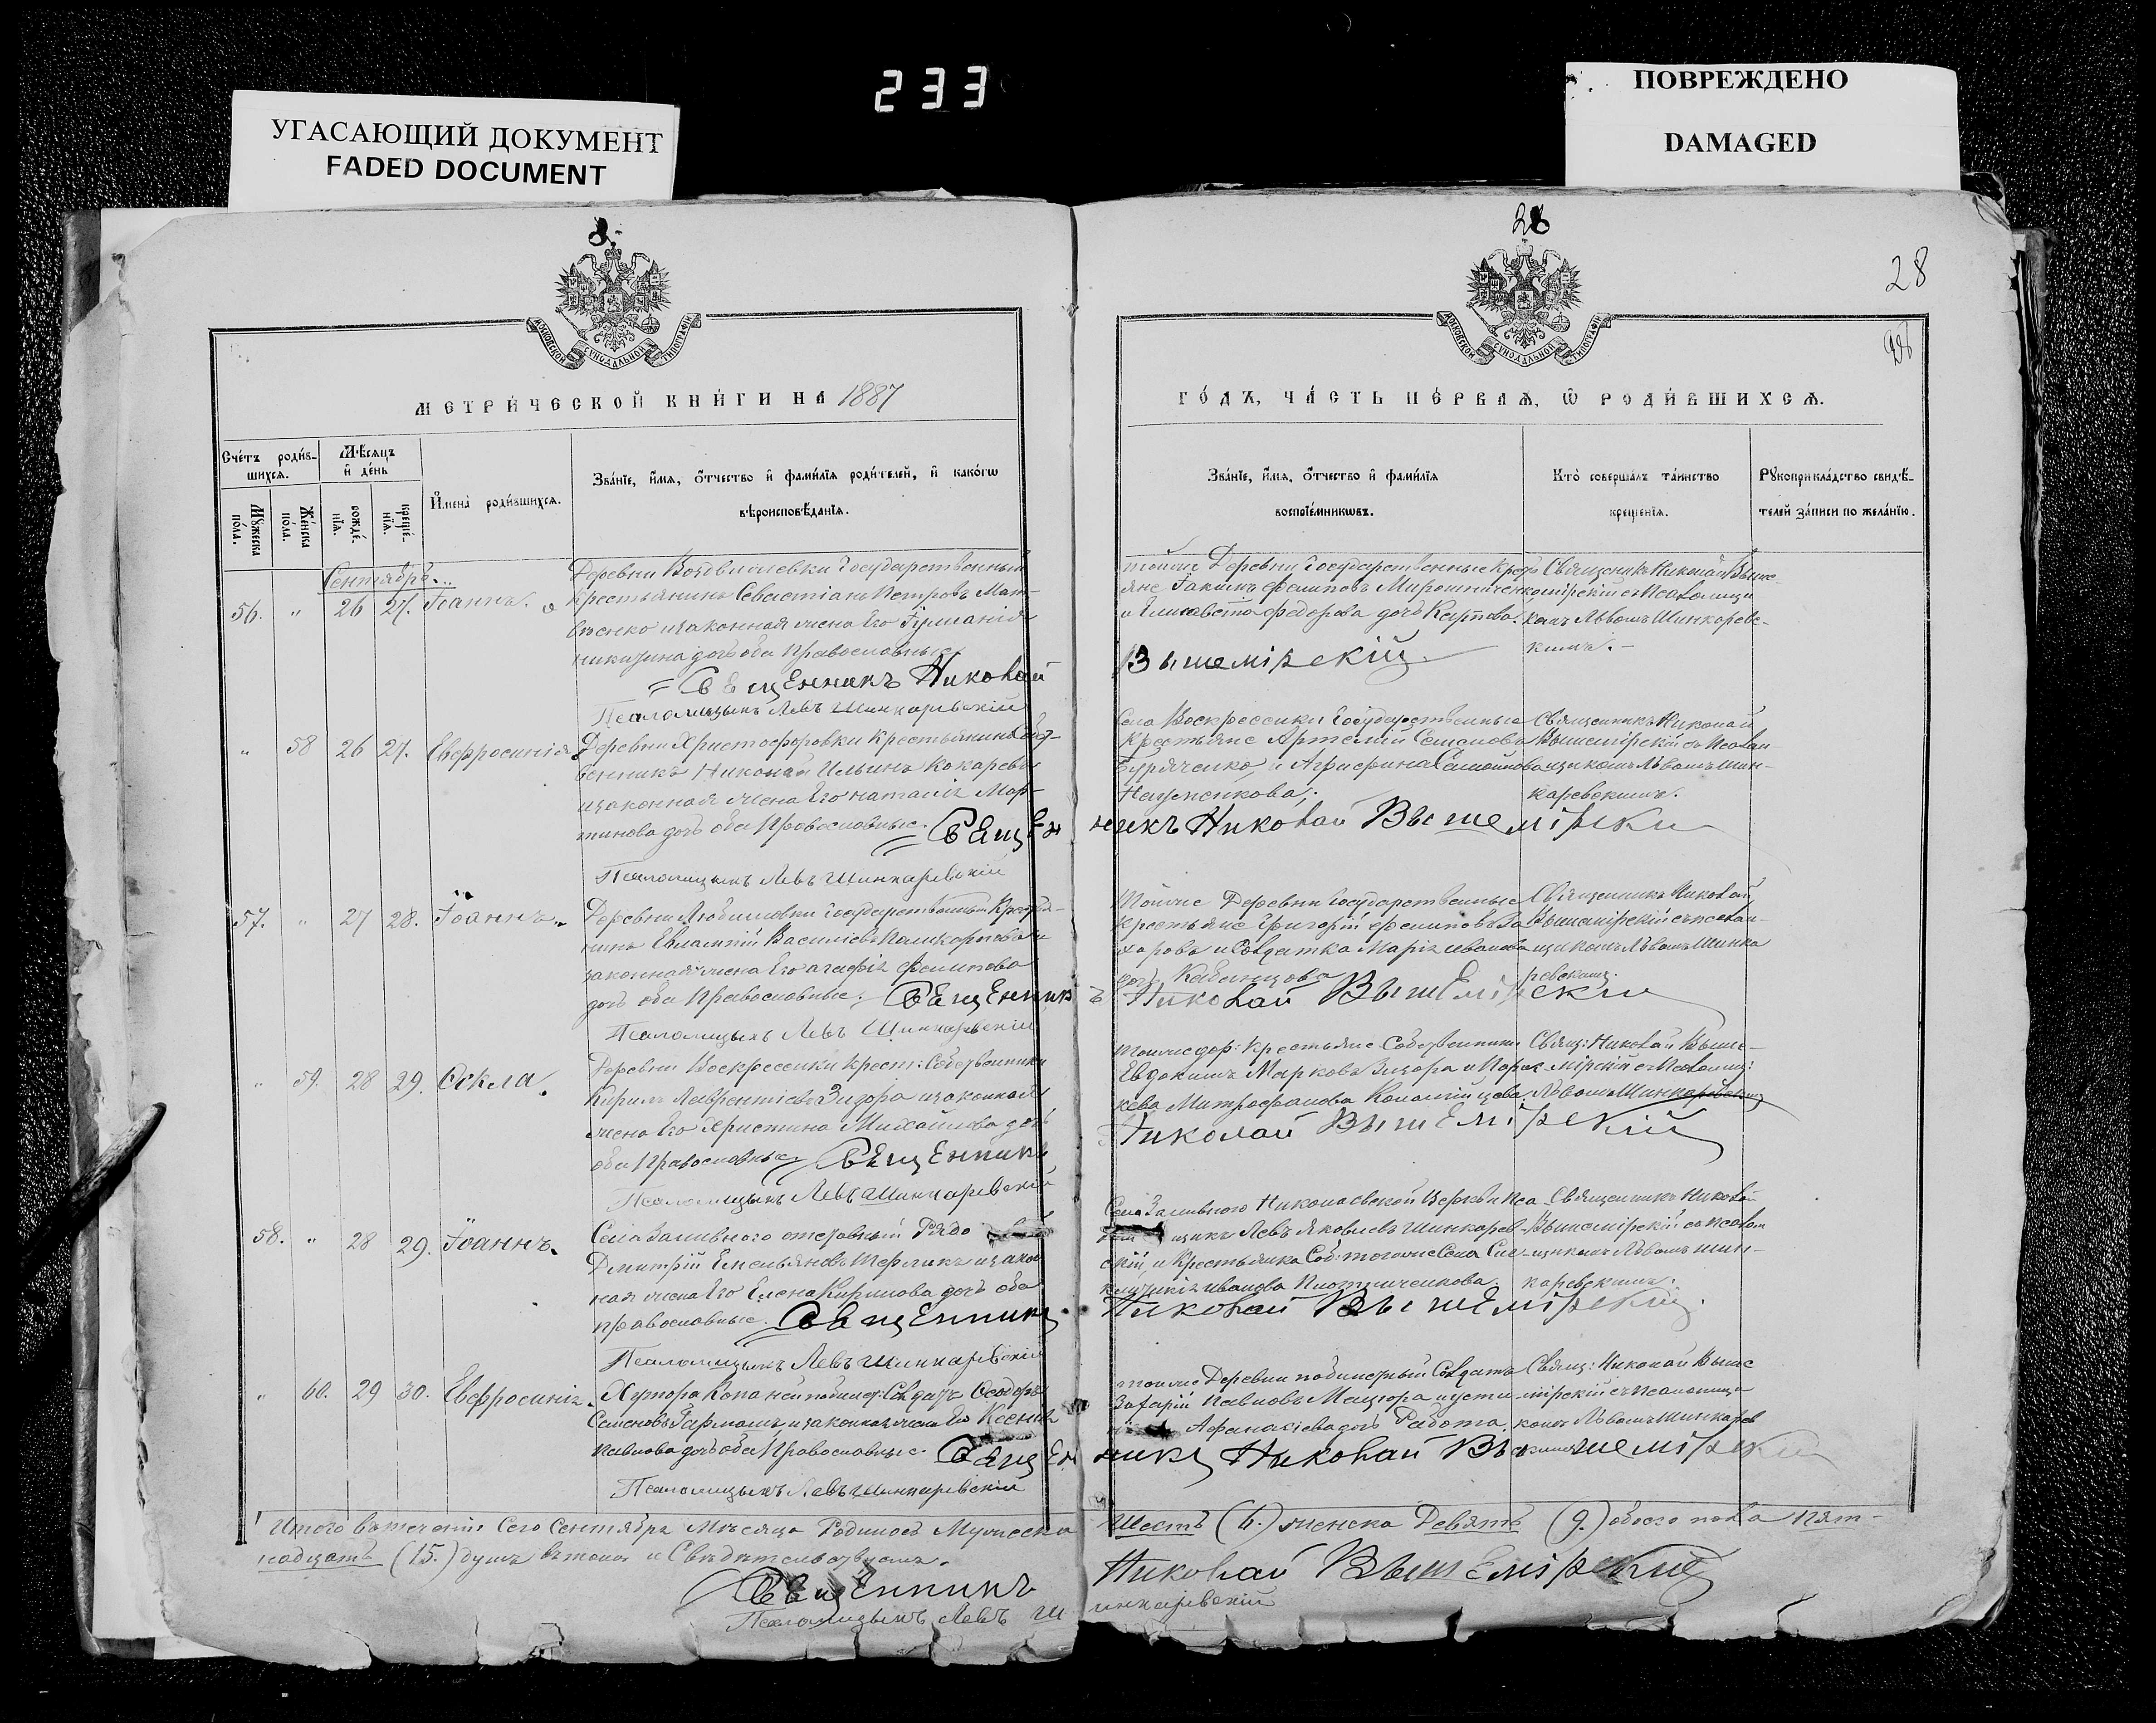 233
УГАСАЮЩИЙ ДОКУМЕНТ
FADED DOCUMENT
ПОВРЕЖДЕНО
DAMAGED
28
28
МОСКОВСКОЙ СѴНОДАЛЬНОЙ ТИПОГРАФІИ
МОСКОВСКОЙ СѴНОДАЛЬНОЙ ТИПОГРАФІИ
МЕТРИ́ЧЕСКОЙ КНИ́ГИ НА 1887
ГО́ДЪ, ЧА́СТЬ ПЕ́РВАѦ, Ѡ РОДИ́ВШИХСѦ.
Сче́тъ роди́в-
шихся.
Мѣсяцъ
и де́нь
Му́жеска
по́ла.
Же́нска
по́ла.
рожде́-
нія.
креще́-
нія.
Имена̀ роди́вшихся.
Зва́ніе, и́мя, о́тчество и фами́лія роди́телей, и како́гѡ
вѣроисповѣ́данія.
Зва́ніе, и́мя, о́тчество и фами́лія
воспріе́мникѡвъ.
Кто̀ соверша́лъ та́инство
креще́нія.
Рукоприкла́дство свидѣ́-
телей за́писи по жела́нію.
Сентябрь
56. " 26 27. Іоаннъ.
Деревни Государственный
Крестьянинъ Севастіанъ Петровъ Мат-
вѣенко и законная жена Его
дочь оба Православные
Священникъ Николай
Псаломщикъ Левъ Шинкаревскій
тойже Деревни Государственные Крест
яне Іакимъ Филиповъ Мирошниченко
и Елисавета Федорова дочь Карпова.
Вышемірскій
Священникъ Николай Выше-
мірскій съ Псаломщи
комъ Львомъ Шинкаревс-
кимъ.
" 58 26 27. Евфросинія
Деревни Христофоровки крестьянинъ Собст-
венникъ Николай Ильинъ Кокаревъ
и законная жена Его Наталія Мар-
тинова дочь оба Православные. Священ
никъ Николай Вышемірскій
Псаломщикъ Левъ Шинкаревскій
Села Воскресенки Государственные
Крестьяне Артемій Семеновъ
и Агрипина Самойлова
Священникъ Николай
Вышемірскій съ Псалом-
щикомъ Львомъ Шин-
каревскимъ.
57. " 27 28. Іоаннъ.
Деревни Любимовки Государственный Крестья-
нинъ Евлампій Василіевъ Поликарповъ и
законная жена Его Агафія Филипова
дочь оба Православные. Священникъ
Николай Вышемірскій
Псаломщикъ Левъ Шинкаревскій
тойже Деревни Государственные
Крестьяне Григорій Филиповъ За
харовъ и Солдатка Марія Иванова
дочь
Священникъ Николай
Вышемірскій съ псалом-
щикомъ Львомъ Шинка
ревским.
" 59. 28 29. Ѳекла.
Деревни Воскресенки крест: Собственникъ
Кирилъ Лаврентіевъ Зидора и законная
жена Его Христина Михайлова дочь
оба Православные Священникъ
Николай Вышемірскій
Псаломщикъ Левъ Шинкаревскій
тойже дер: Крестьяне Собственники
Евдокимъ Марковъ Зидора и Парас
кева Митрофанова
Свящ: Николай Выше-
мірскій съ Псаломщ:
Львомъ Шинкаревским
58. " 28 29. Іоаннъ.
Села Заливного отставный Рядо
Дмитрій Емельяновъ и закон
ная жена Его Елена Кирилова дочь оба
православные. Священникъ
Николай Вышемірскій.
Псаломщикъ Левъ Шинкаревскій
Села Заливного Николаевской Церкви Пса
щикъ Левъ Яковлевъ Шинкарев-
скій, и Крестьянка Соб: тогоже Села
Иванова Плотниченкова.
Священникъ Николай
Вышемірскій съ псалом
щикомъ Львомъ Шин-
каревскимъ.
" 60. 29 30. Евфросинія.
Хутора Копаней Солдатъ Ѳеодоръ
Семеновъ и законная жена Его Ксенія
Павлова дочь оба Православные. Священ
никъ Николай Вышемірскій
Псаломщикъ Левъ Шинкаревскій
тойже Деревни Солдатъ
Захарій Павловъ и Усти
Афанасіева дочь Работа.
Свящ: Николай Выше
мірскій съ Псаломщи
комъ Львомъ Шинкарев
скимъ
Итого въ теченіи Сего Сентября Мѣсяца Родилось Мужеска Шесть (6.) женска Девять (9.) обоего пола Пят-
надцать (15.) душъ въ томъ и Свидѣтельствуемъ.
Священникъ Николай Вышемірскій
Псаломщикъ Левъ Шинкаревскій